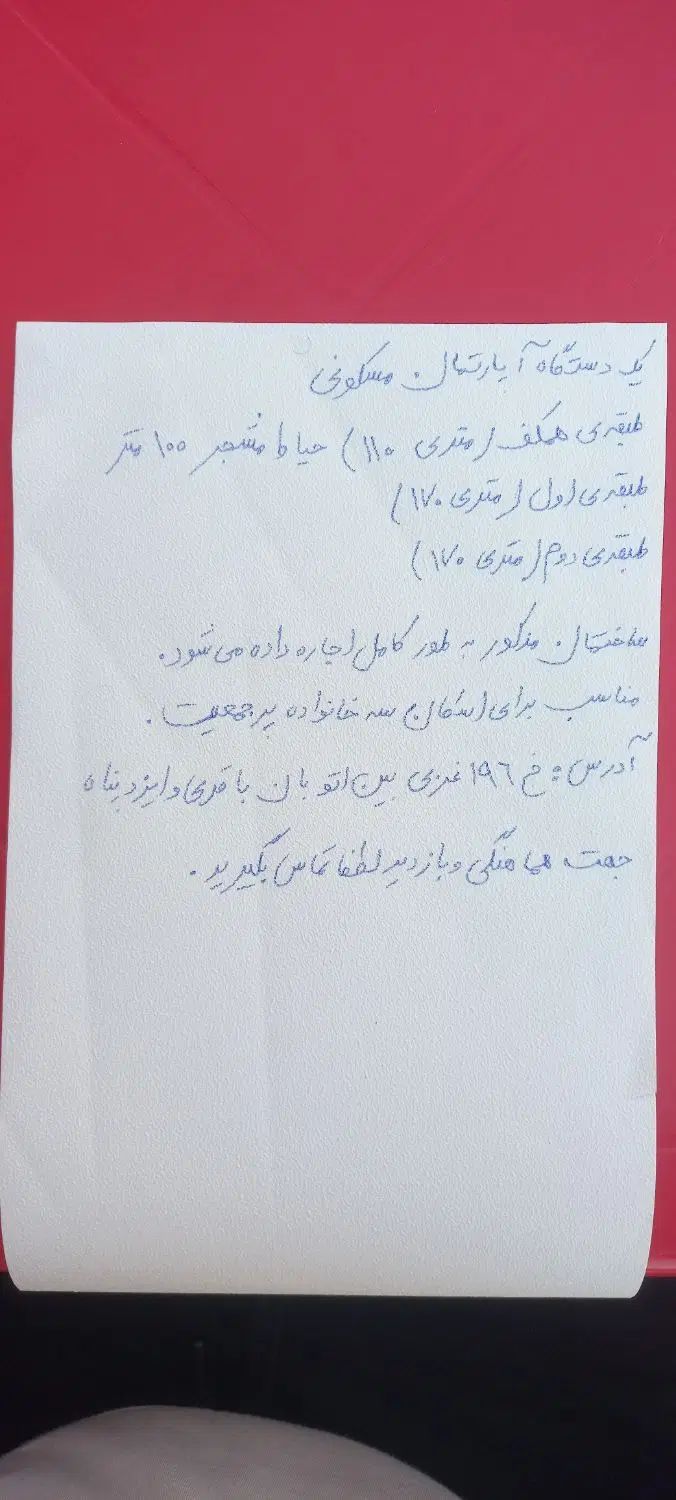 یک دستگاه آپارتمان مسکونی
طبقه‌ی همکف (متری ۱۱۰) حیاط مشجر ۱۰۰ متر
طبقه‌ی اول (متری ۱۷۰)
طبقه‌ی دوم (متری ۱۷۰)
ساختمان مذکور به طور کامل اجاره داده می‌شود.
مناسب برای اسکان سه خانواده پرجمعیت.
آدرس: خ ۱۹۶ غربی بین اتوبان باقری و ایزدپناه
جهت هماهنگی و بازدید لطفا تماس بگیرید.